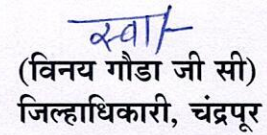 स्वा/-
(विनय गौडा जी सी)
जिल्हाधिकारी, चंद्रपूर